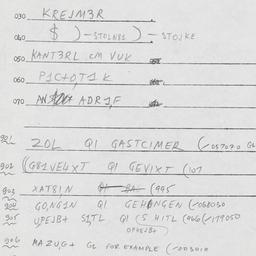 030 KREJM3R
040 $ ) - STOLN81 ) - STOJKE
050 KANT3RL CM VUK
060 P1C+0,T1K
070 ADR1F
901 ZOL QI GASTCIMER (✓057070 GL
902 (G81VE4XT QI GEVIXT (107
903 XAT81N (995
904 GO,NG1N QI GEHONGEN (✓068030
905 U,PEJB+ S1,TL QI (S HITL (066 (✓179050
906 MAZU,G+ GL FOR EXAMPLE (✓003010